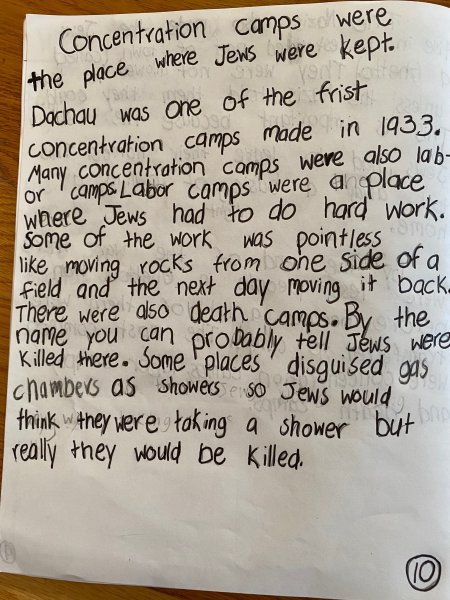 Concentration camps were
the place where Jews were kept.
Dachau was one of the frist
concentration camps made in 1933.
Many concentration camps were also lab-
or camps. Labor camps were a place
where Jews had to do hard work.
Some of the work was pointless
like moving rocks from one side of a
field and the next day moving it back.
There were also death camps. By the
name you can probably tell Jews were
killed there. Some places disguised gas
chambers as showers so Jews would
think they were taking a shower but
really they would be killed.
10